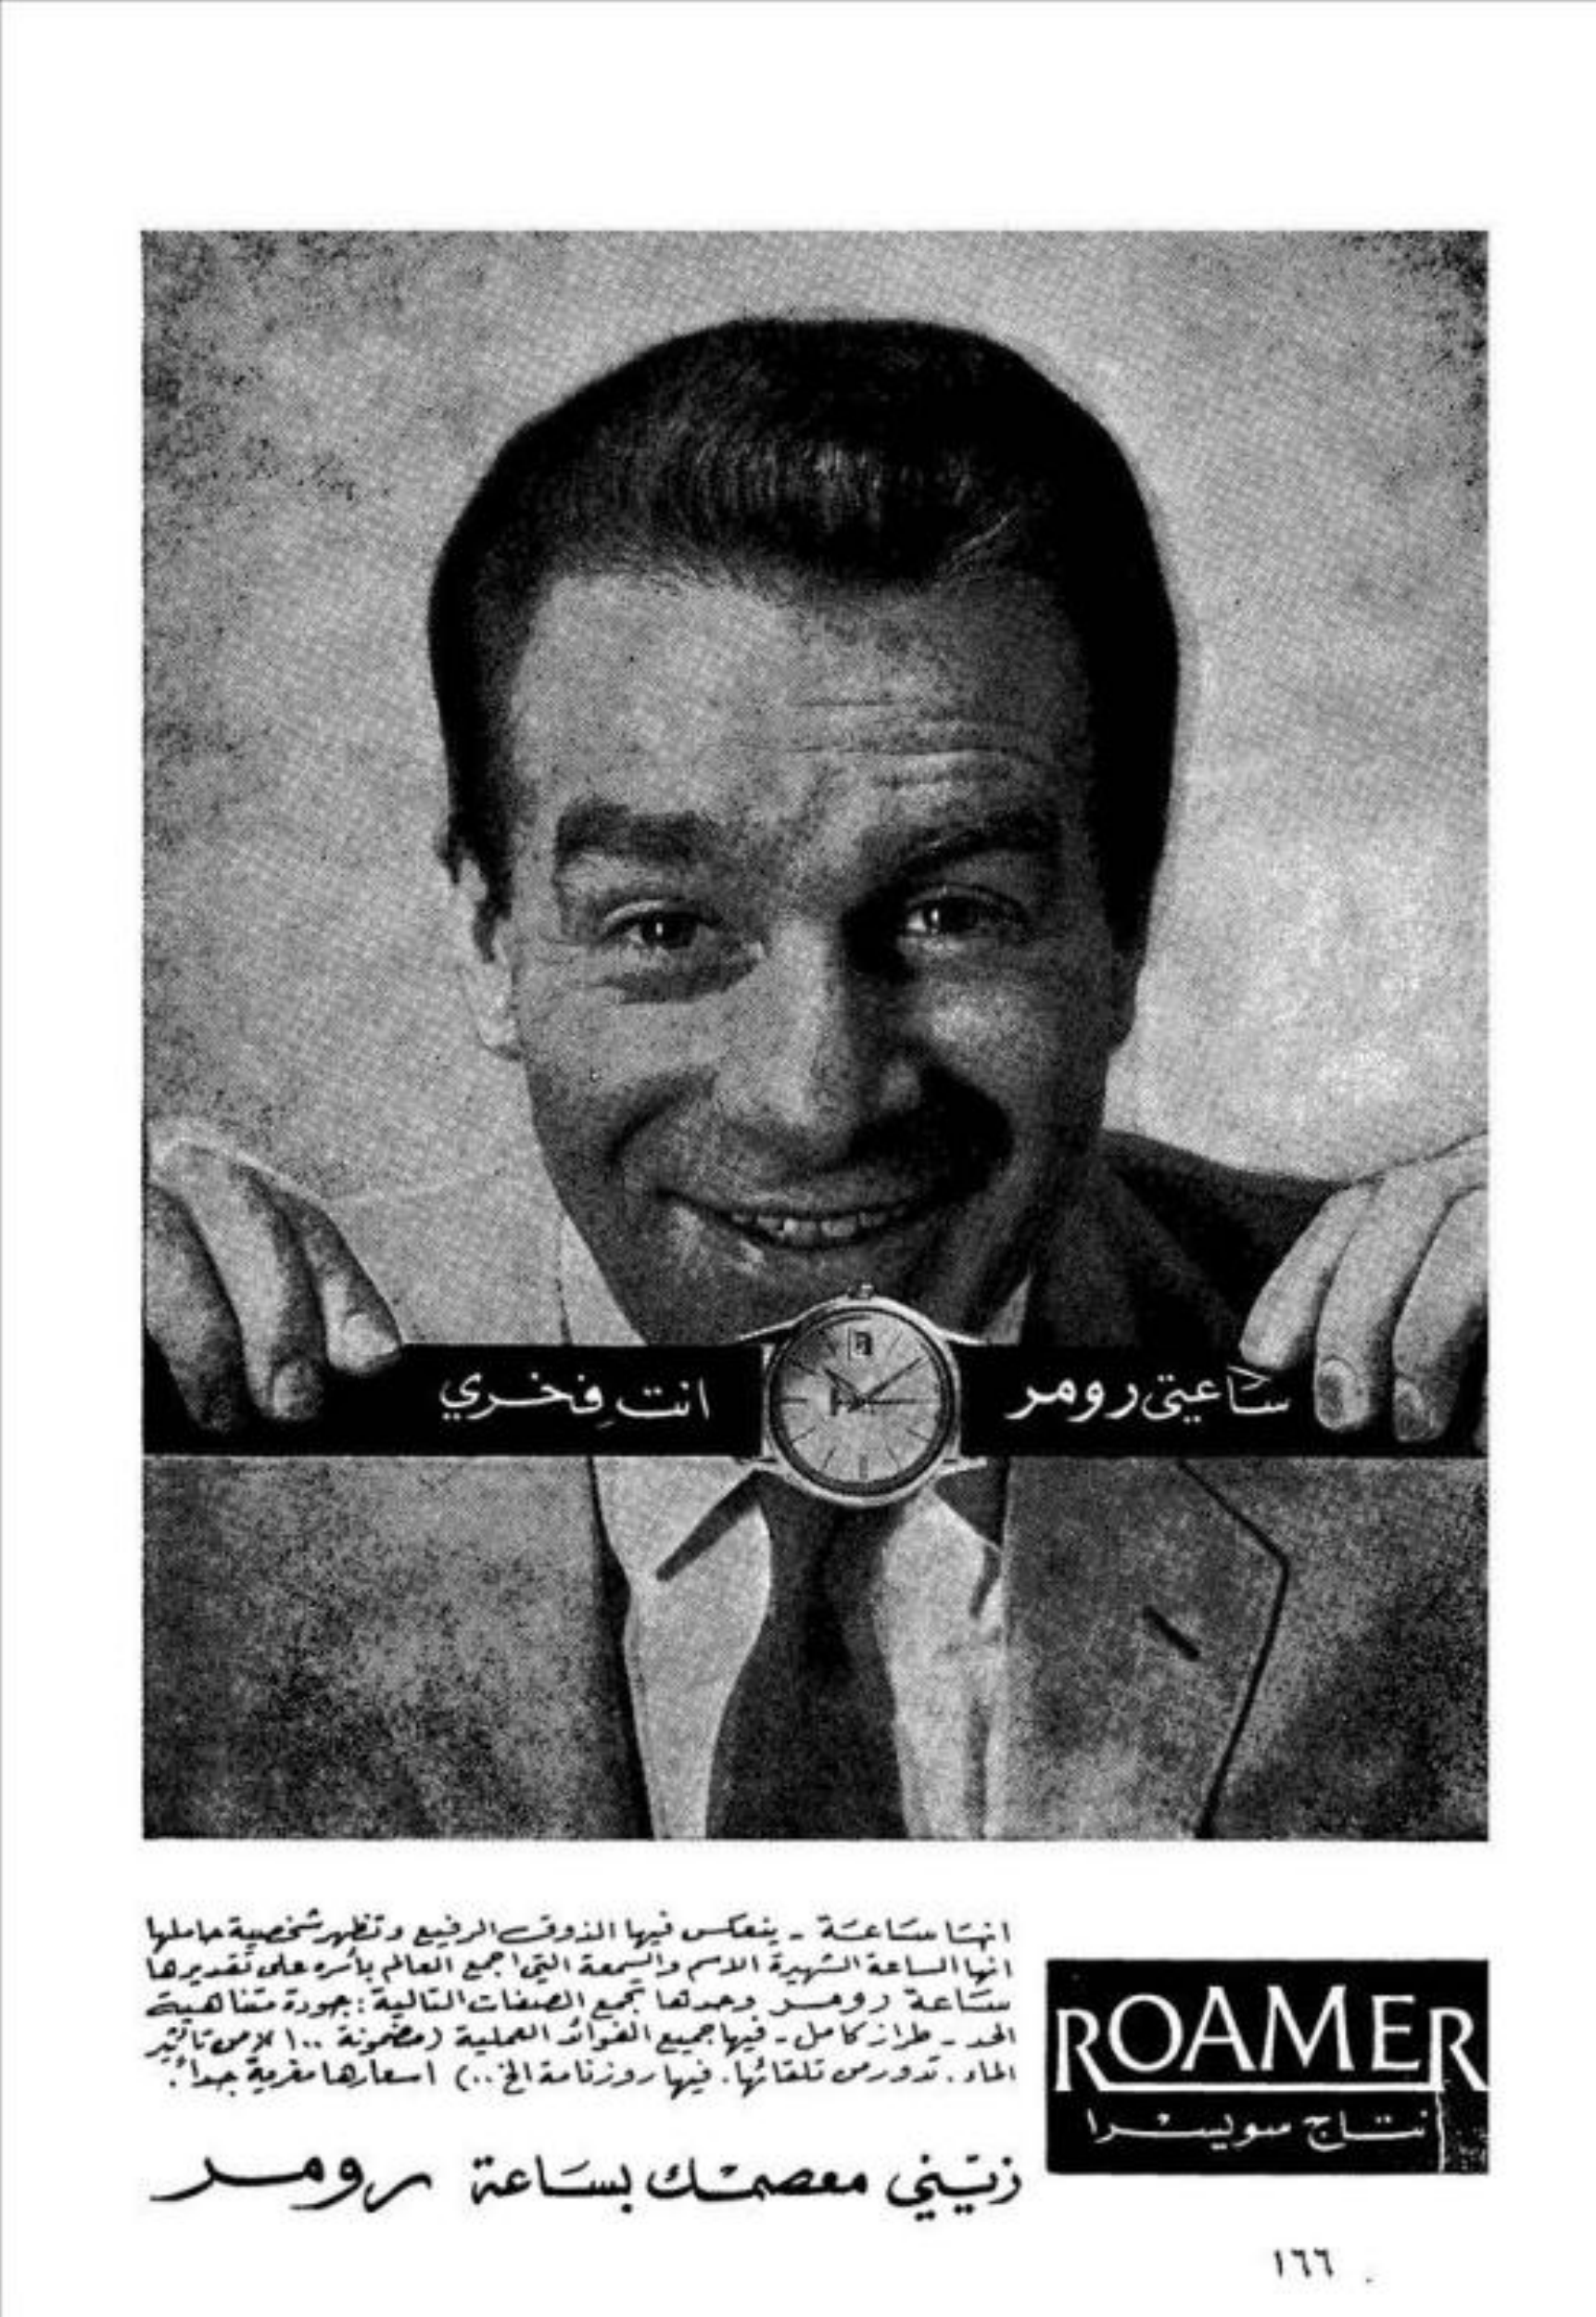 ساعتي رومر انت فخري
انها ساعة - ينعكس فيها الذوق الرفيع وتظهر شخصية حاملها
انها الساعة الشهيرة الاسم والسمعة التي اجمع العالم بأسره على تقديرها
ساعة رومر وحدها تجمع الصفات التالية : جودة متناهية
الحد - طراز كامل - فيها جميع الفوائد العملية (مضمونة ١٠٠ من تأثير
الماء . تدور من تلقائها . فيها روزنامة الخ ..) اسعارها مغرية جداً .
ROAMER
نتاج سويسرا
زيّني معصمك بساعة رومر
١٦٦